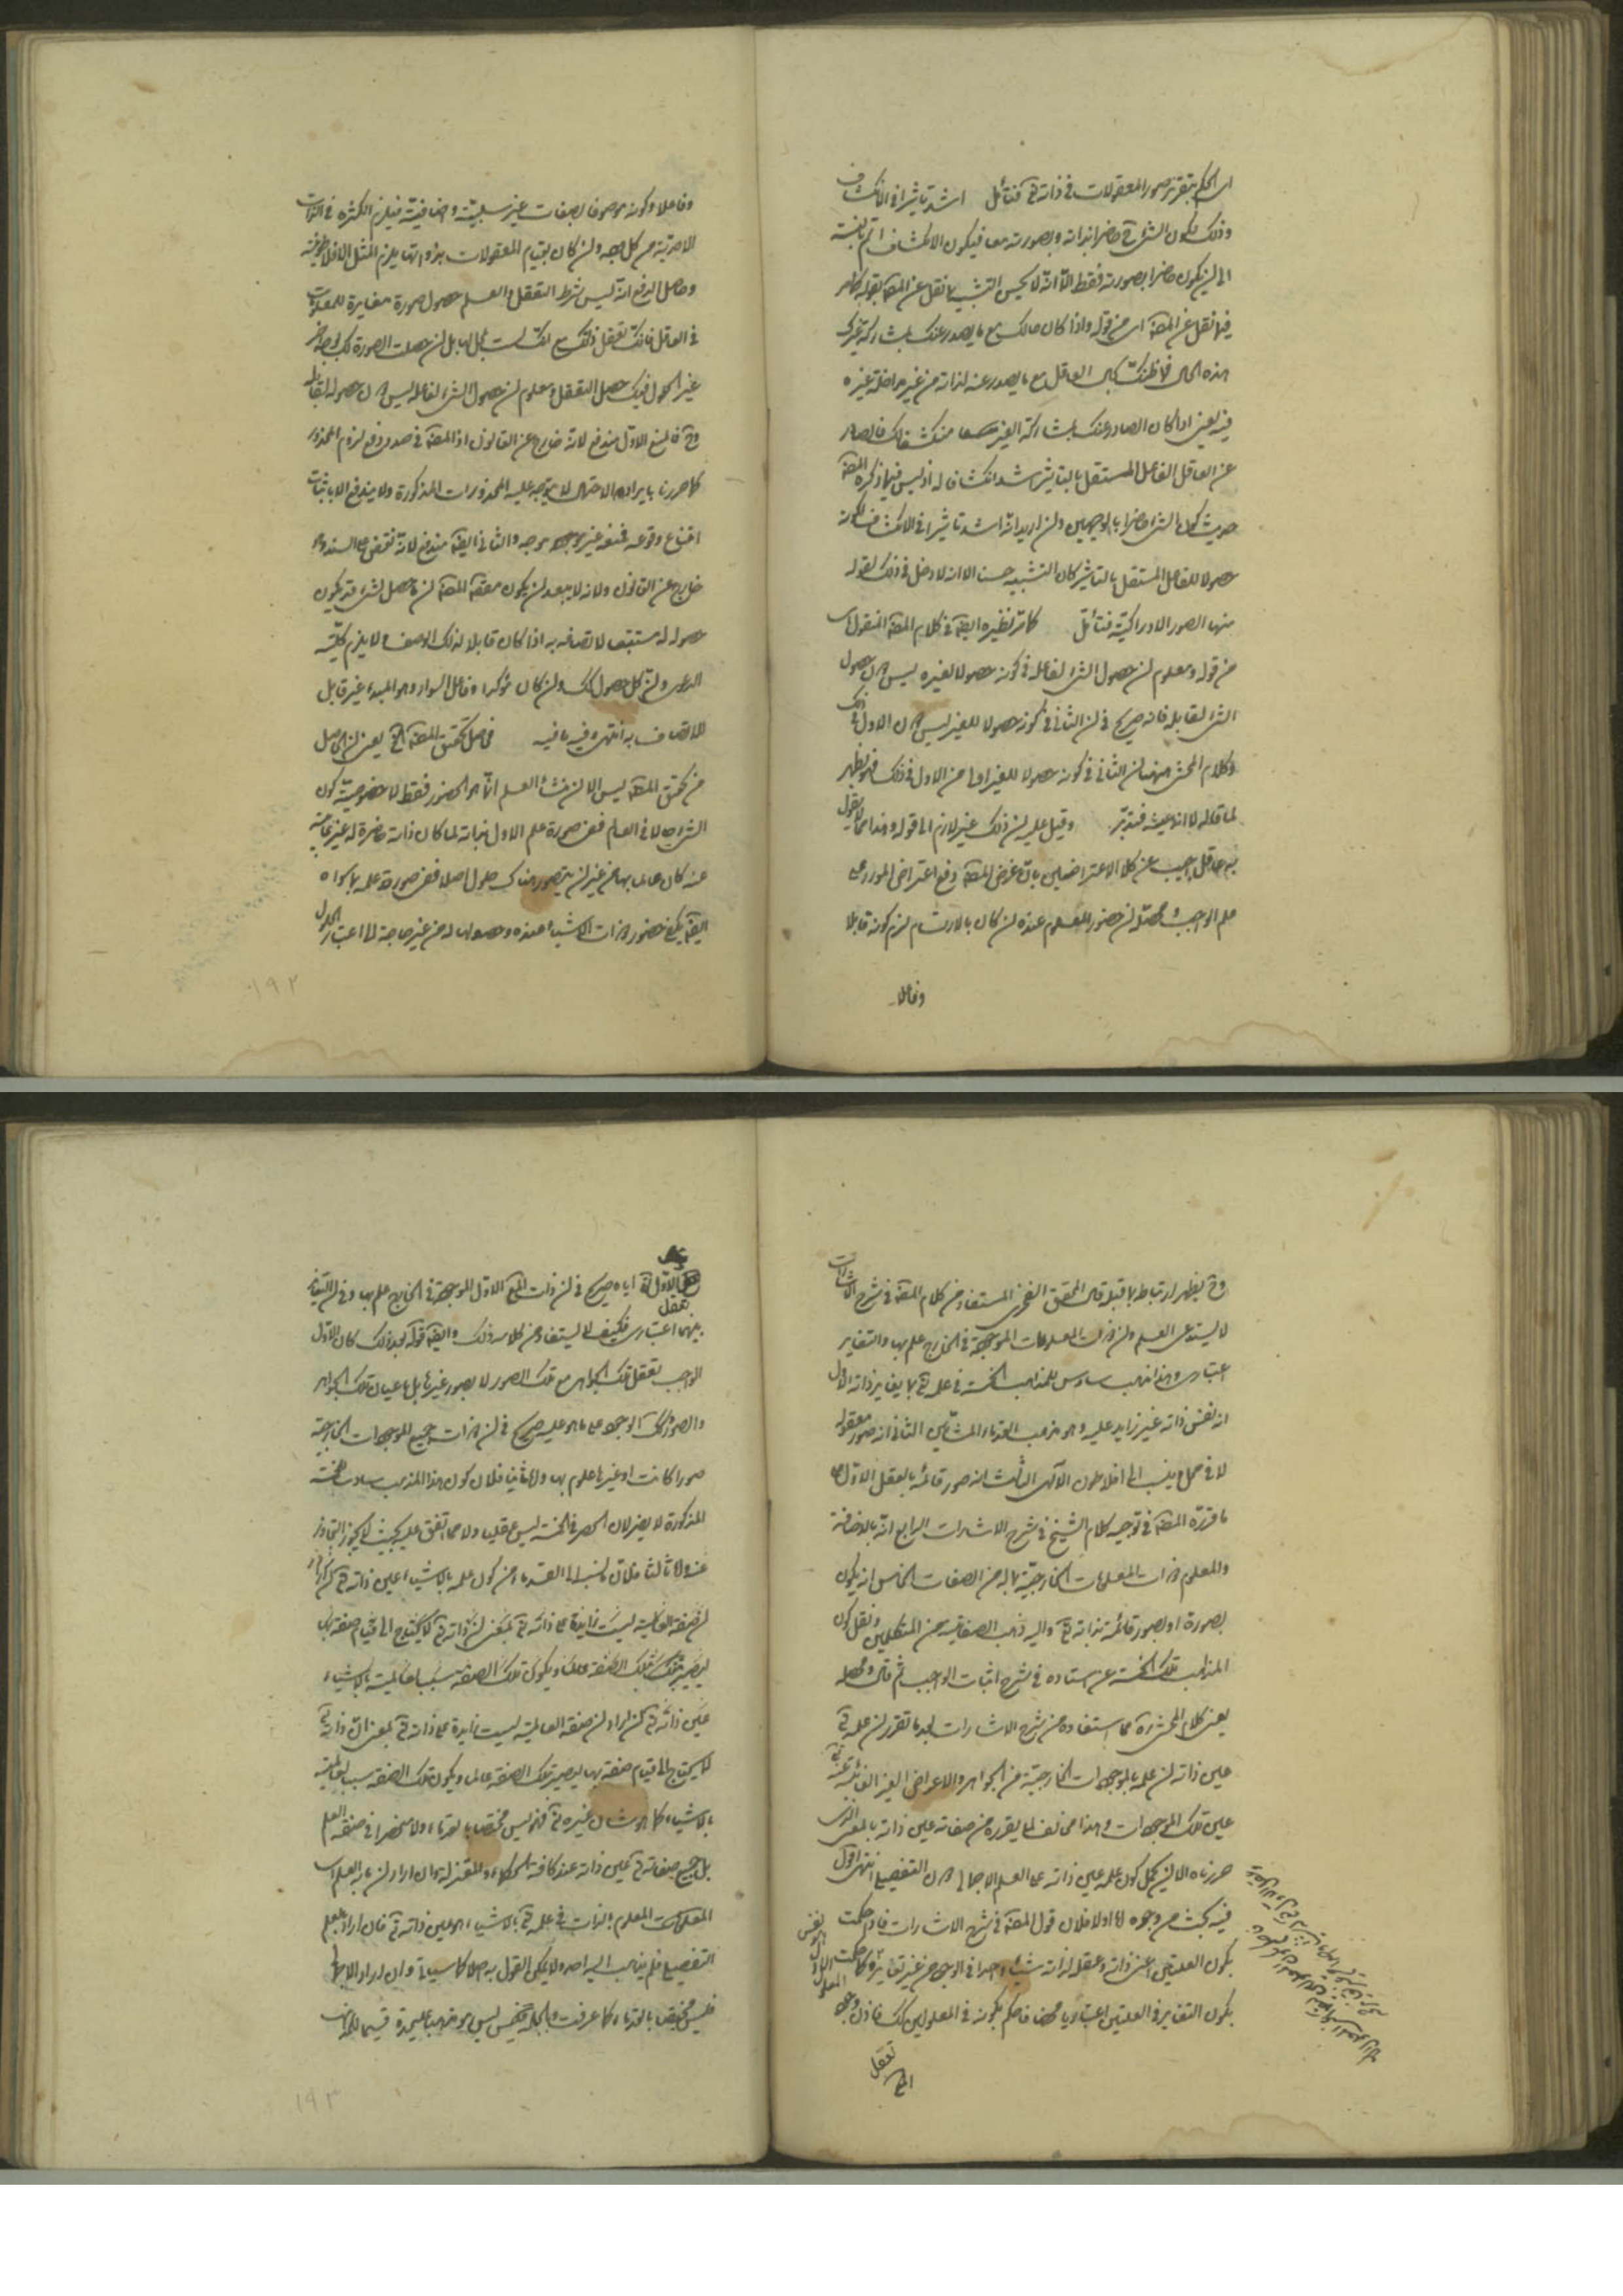 اى الحكم بتقرير صور المعقولات فى ذاته تع فتأمل اشد تاثيرا فى الانكشاف
وذلك لكون الشئ ح حاضرا بذاته وبصورته معا فيكون الانكشاف اتم بالنسبة
الى ان يكون حاضرا بصورته فقط الا انه لا يحسن التشبيه لما نقل عن المص بقوله كما مر
فيما نقل عن المص اى من قوله واذا كان حالك مع ما يصدر عنك بمشاركة غيرك
هذه الحال فما ظنك بحال العاقل مع ما يصدر عنه لذاته من غير مداخلة غيره
فيه يعنى اذا كان الصادر عنك بمشاركة الغير منكشفا لك فالصادر
عن العاقل الفاعل المستقل بالتاثير اشد انكشافا له اذ ليس فيما ذكره المص
حديث كون الشئ حاضرا بالوجهين وان اريد انه اشد تاثيرا فى الانكشاف لكونه
حصولا للفاعل المستقل بالتاثير كان التشبيه حسنا الا انه لا دخل فى ذلك لقوله
منها الصور الادراكية فتأمل كما مر نظيره ايضا فى كلام المص المنقول اى
من قوله ومعلوم ان حصول الشئ لفاعله فى كونه حصولا لغيره ليس دون حصول
الشئ لقابله فانه صريح فى ان الثانى فى كونه حصولا للغير ليس دون الاول فى ذلك
وكلام المحشى هنا ان الثانى فى كونه حصولا للغير اولى من الاول فى ذلك فهو نظير
لما قاله لا انه عينه فتدبر وقيل عليه ان ذلك غير لازم الى قوله وهذا مما لا يقول
به عاقل اجيب عن كلا الاعتراضين بان غرض المص دفع اعتراض المورد على
علم الواجب ومحصله ان حضور المعلوم عنده ان كان بالارتسام لزم كونه قابلا
وفاعلا
وفاعلا وكونه موصوفا بصفات غير سلبية واضافية فيلزم الكثرة فى الذات
الاحدية من كل جهة وان كان بقيام المعقولات بذواتها يلزم المثل الافلاطونية
وحاصل الدفع انه ليس شرط التعقل والعلم حصول صورة مغايرة للمعلومات
فى العاقل فانك تعقل ذاتك مع انك لست بمحل لها بل ان حصلت الصورة لك بوجه اخر
غير الحلول فيك حصل التعقل ومعلوم ان حصول الشئ لفاعله ليس دون حصوله لقابله
وح فالمنع الاول مندفع لانه خارج عن القانون اذ المص فى صدد دفع لزوم المحذور
كما حررنا بايراد الاحتمال لا يتوجه عليه المحذورات المذكورة ولا يندفع الا باثبات
امتناع وقوعه فمنعه غير موجه والثانى ايضا مندفع لانه نقض على السند وهو
خارج عن القانون ولانه لا يبعد ان يكون مقصد المص ان ما حصل لشئ قد يكون
حصوله له مستتبعا لاتصافه به اذا كان قابلا لذلك الوصف ولا يلزم كلية
الدعوى وان كل حصول كك وان كان مؤكدا وفاعل السواد وهو المبدء غير قابل
للاتصاف به انتهى وفيه ما فيه فحاصل تحقيق المص الخ يعنى ان الحاصل
من تحقيق المص ليس الا ان منشأ العلم انما هو الحضور فقط لا خصوصية كون
الشئ حالا فى العالم ففى صورة علم الاول بذاته لما كان ذاته حاضرة له غير غائبة
عنه كان عالما بها من غير ان يتصور هناك حلول اصلا ففى صورة علمه بما سواه
ايضا يكفى حضور ذوات الاشياء عنده وحصولها له من غير حاجة الى اعتبار الحلول
١٩٢
وح يظهر ارتباطه بما قبله قال المحقق الفخرى المستفاد من كلام المص فى شرح الاشارات
لا يستدعى العلم وان ذوات المعلومات الموجودة فى الخارج علم بها والتغاير
اعتبارى وهذا مذهب سادس للمذاهب الخمسة فى علمه تع بما يغاير ذاته الاول
انه نفس ذاته غير زايد عليه وهو مذهب القدماء المشائين الثانى انه صور معقولة
لا فى محل ينسب الى افلاطون الالهى الثالث انه صور قائمة بالعقل الاول على
ما قرره المص فى توجيه كلام الشيخ فى شرح الاشارات الرابع انه بالاضافة
والمعلوم ذوات المعلومات الخارجية بما له من الصفات الخامس انه يكون
بصورة او بصور قائمة بذاته تع واليه ذهب الصفاتية من المتكلمين ونقل كون
المذاهب تلك الخمسة عن استاده فى شرح اثبات الواجب ثم قال ومحصله
يعنى كلام المحشى ره مما استفاده من شرح الاشارات بعد ما تقرر ان علمه تع
عين ذاته ان علمه بالموجودات الخارجية من الجواهر والاعراض الغير الغائبة عنه تع
عين تلك الموجودات وهذا مخالف لما يقرره من صفاته عين ذاته بالمعنى الذى
حررناه الا ان يحمل كون علمه عين ذاته على العلم الاجمالى دون التفصيلى انتهى اقول
فيه بحث من وجوه اما اولا فلان قول المص فى شرح الاشارات فاذا حكمت
بكون العلتين اعنى ذاته وعقله لذاته شيئا واحدا فى الوجود من غير تغاير فكما حكمت
بكون التغاير فى العلتين اعتباريا محضا فاحكم بكونه فى المعلولين كك فاذن وجود
المع تعقل
الاول اياه صريح فى ان ذات المع الاول الموجودة فى الخارج علم بها وفى ان التغاير
بينهما اعتبارى فكيف لا يستفاد من كلامه ذلك وايضا قوله بعد ذلك كان الاول
الواجب تعقل تلك الجواهر مع تلك الصور لا بصور غيرها بل باعيان تلك الجواهر
والصور وكك الوجود على ما هو عليه صريح فى ان ذوات جميع الموجودات الخارجية
صورا كانت او غيرها علوم بها واما ثانيا فلان كون هذا المذهب سادس خمسة
المذكورة لا يضر لان الحصر فى الخمسة ليس عقليا ولا مما اتفق عليه بحيث لا يجوز التجاوز
عنه واما ثالثا فلان ما نسبه الى القدماء من كون علمه بالاشياء عين ذاته تع ان اراد
ان صفة العالمية ليست زايدة على ذاته تع بمعنى ان ذاته تع لا يحتاج الى قيام صفة بها
ليصير بتلك الصفة عالما ويكون تلك الصفة سببا لعالمية بالاشياء
عين ذاته تع ان اراد ان صفة العالمية ليست زايدة على ذاته تع بمعنى ان ذاته تع
لا يحتاج الى قيام صفة بها ليصير بتلك الصفة عالما ويكون تلك الصفة سببا لعالميته
بالاشياء كما هو شان غيره تع فهو ليس مختصا بالقدماء ولا منحصرا فى صفة العلم
بل جميع صفاته تع عين ذاته عند كافة الحكماء والمعتزلة وان اراد ان ما به العلم اى
المعلوم بالذات فى علمه تع بالاشياء هو عين ذاته تع فان اراد العلم
التفصيلى فلم يذهب اليه احد ولا يمكن القول به اصلا كما سياتى وان اراد الاجمالى
فليس مختصا بالقدماء كما عرفت وبالجملة فليس هو مذهبا عليحدة قسيما للمذاهب
١٩٣